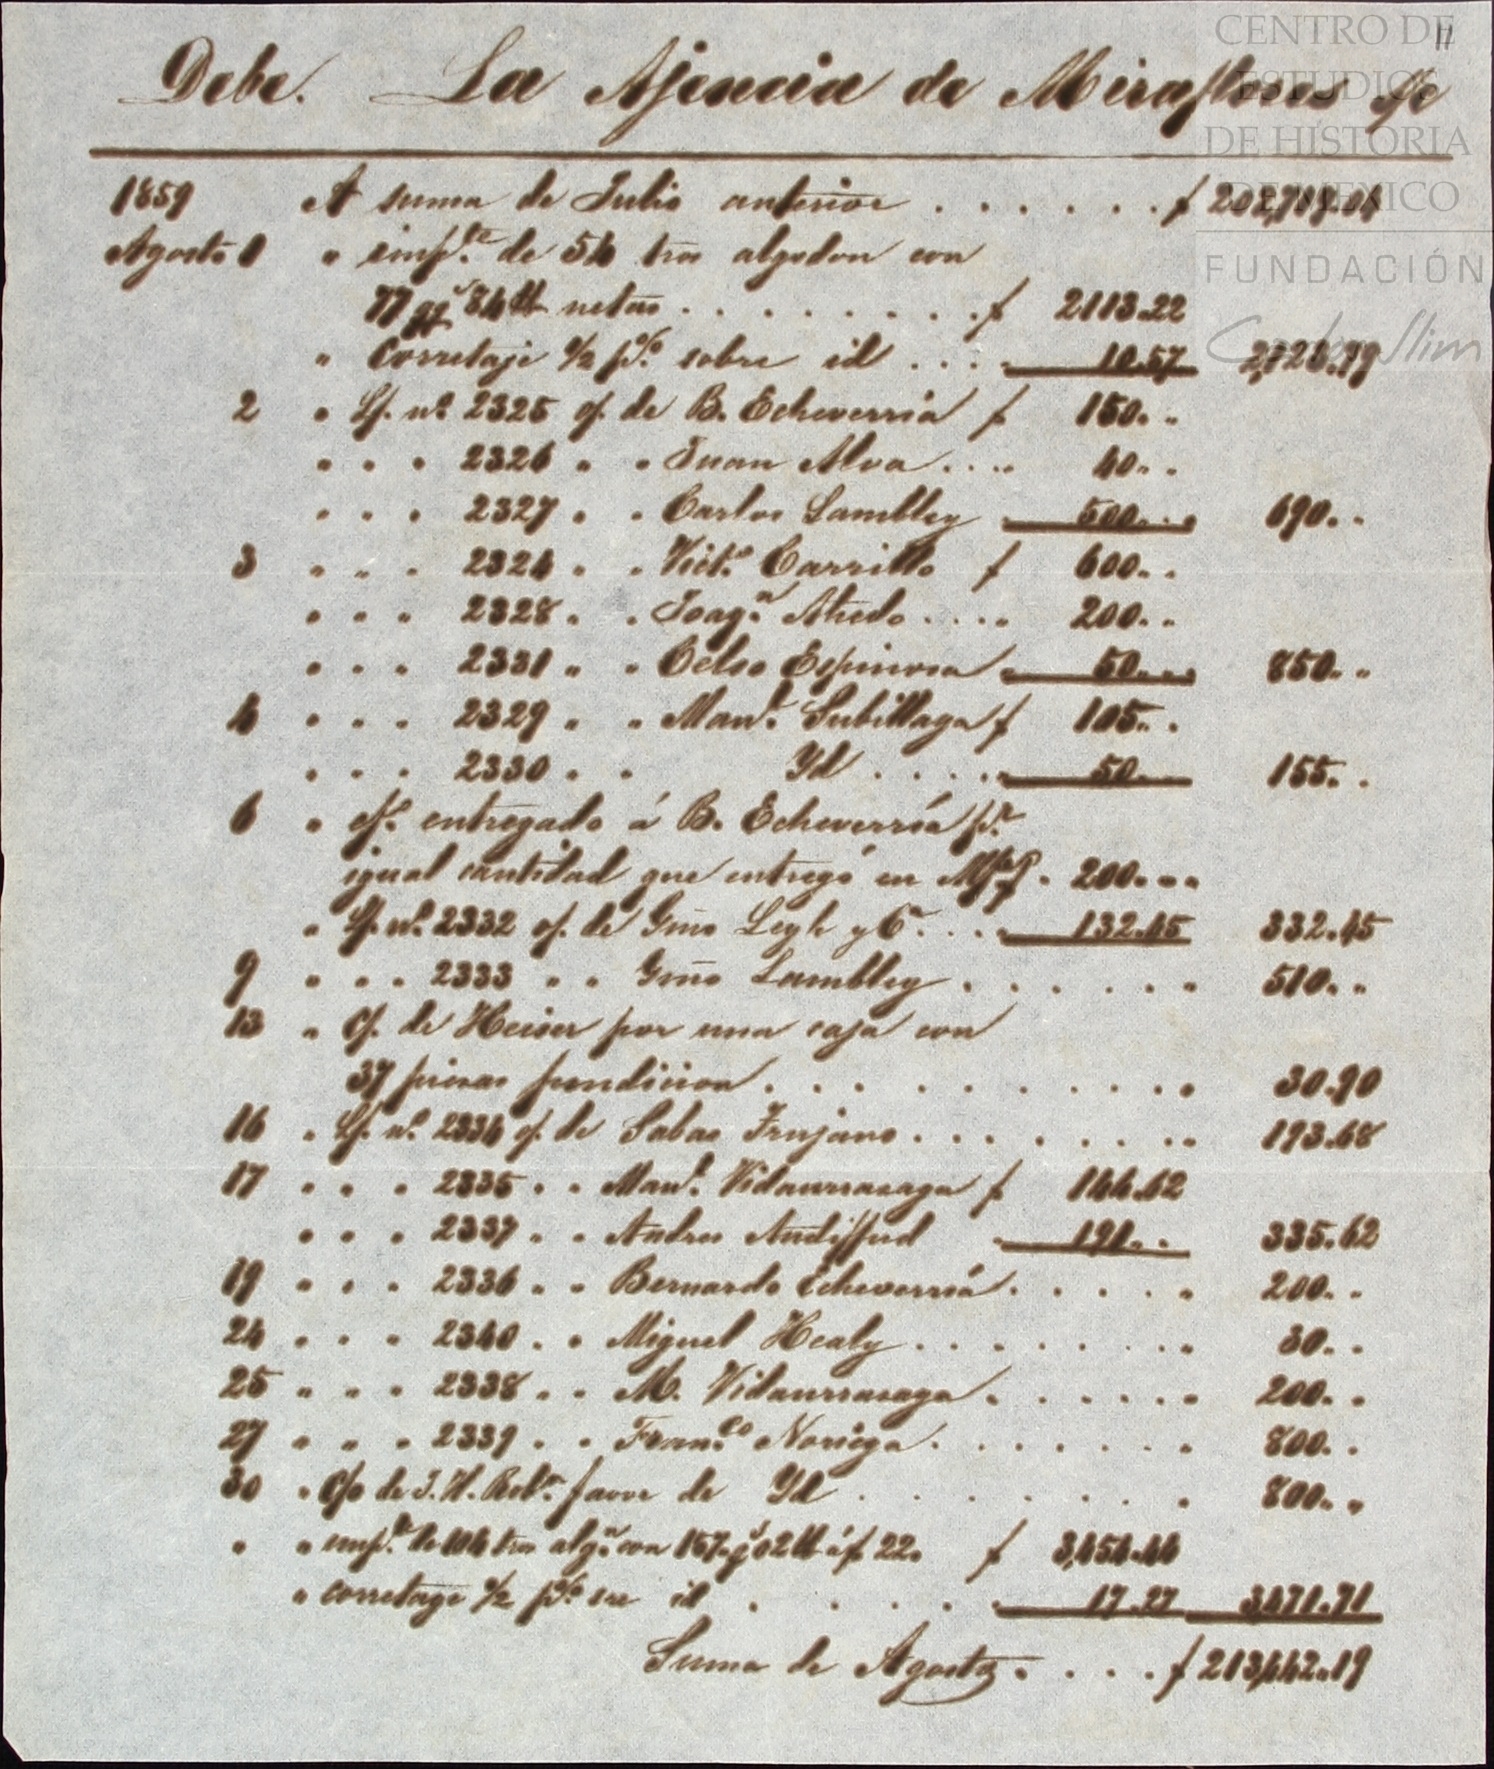 CENTRO DE ESTUDIOS DE HISTORIA DE MEXICO
FUNDACIÓN
Carlos Slim
11
Debe. La Ajencia de Miraflores
1859 A suma de Julio anterior . . . . . . $ 202,719.04
Agosto 1 " imp.te de 54 tros algodon con
77 qqs 84 lb netas . . . . . . . . $ 2113.22
" Corretaje 1/2 p% sobre id . . . . 10.57 2,123.79
2 " Lp. no. 2325 of. de B. Echeverria $ 150. .
" " " 2326 " " Juan Alva . . . . 40. .
" " " 2327 " " Carlos Lambley 500. . . 690. .
3 " " " 2324 " " Vict.o Carrillo $ 600. .
" " " 2328 " " Joaq.n Atredo . . . . 200. .
" " " 2331 " " Celso Espinosa 50. . . 850. .
4 " " " 2329 " " Man.l Subillaga $ 105. .
" " " 2330 " " Yd . . . . 50. . 155. .
6 " ef.o entregado á B. Echeverría p.r
igual cantidad que entregó en . 200. . .
" Lp. no. 2332 of. de Gmo Legh y Ca. . . . 132.45 332.45
9 " " " 2333 " " Gmo Lambley . . . . . . 510. .
13 " Cp. de Heiser por una caja con
37 piezas fundicion . . . . . . . . . . 30.90
16 " Lp. no. 2334 of. de Sabas Trujano . . . . . . . 193.68
17 " " " 2335 " " Man.l Vidaurrazaga $ 144.62
" " " 2337 " " Andres Audiffred 191. . 335.62
19 " " " 2336 " " Bernardo Echeverría . . . . . 200. .
24 " " " 2340 " " Miguel Healy . . . . . . . 30. .
25 " " " 2338 " " M. Vidaurrazaga . . . . . . 200. .
27 " " " 2339 " " Fran.co Noriega . . . . . . . 800. .
30 " C/o de J. H. Rob.n favor de Yd . . . . . . . . 800. .
" " imp.te de 104 tros alg.n con 157 qs 02 lb á $ 22. $ 3,454.44
" corretage 1/2 p% sre id . . . . 17.27 3471.71
Suma de Agosto . . . . $ 213,442.19